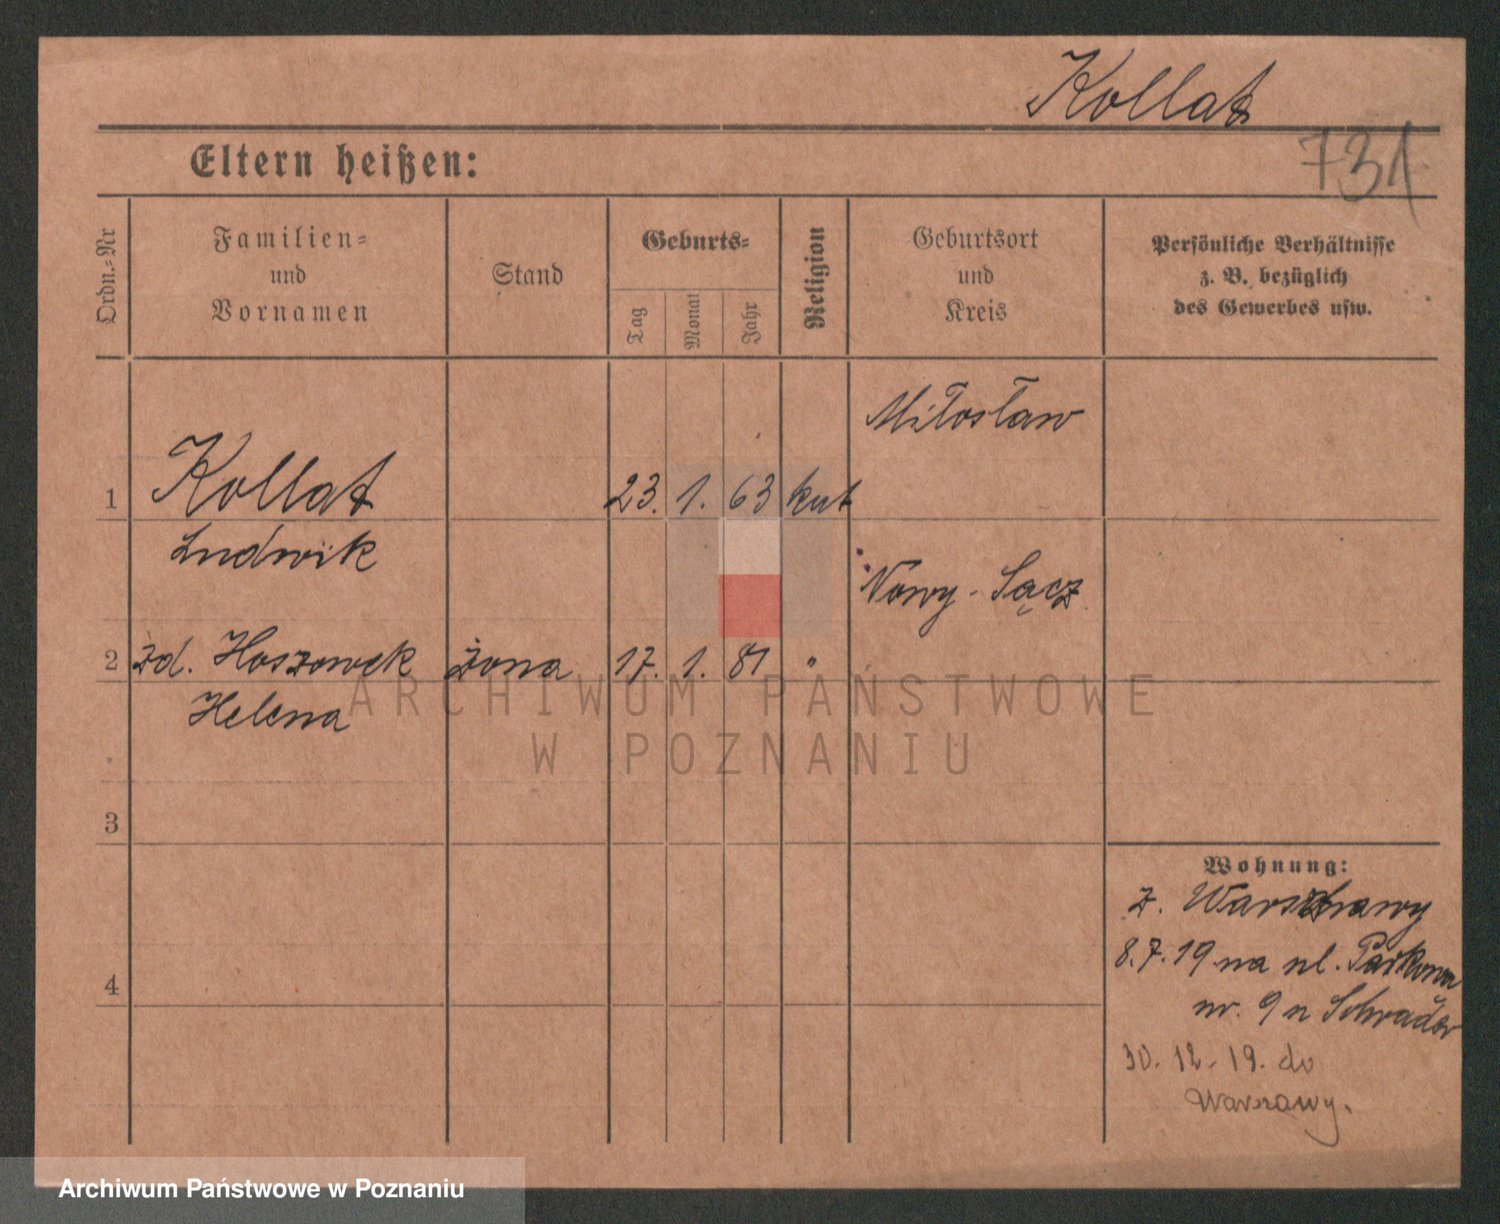 Kollat
731
Eltern heißen:
Ordn.-Nr
Familien-
und
Vornamen
Stand
Geburts-
Tag
Monat
Jahr
Religion
Geburtsort
und
Kreis
Persönliche Verhältnisse
z. B. bezüglich
des Gewerbes usw.
Miłosław
1 Kollat 23. 1. 63 kat
Ludwik
Nowy-Sącz
2 zd. Hoszowek żona 17. 1. 81 "
Helena
ARCHIWUM PAŃSTWOWE
W POZNANIU
3
Wohnung:
z. Warszawy
8.7.19 na ul. Parkowa
nr. 9 u Schrader
4
30. 12. 19. do
Warszawy.
Archiwum Państwowe w Poznaniu